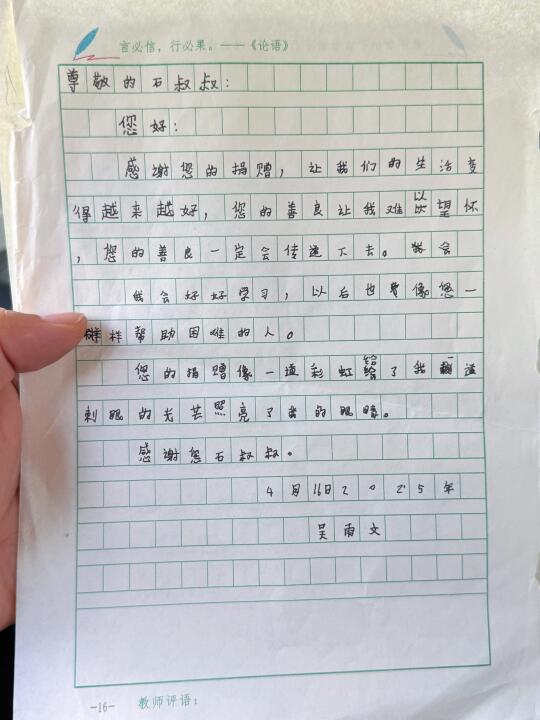 言必信，行必果。——《论语》
尊敬的石叔叔：
您好：
感谢您的捐赠，让我们的生活变
得越来越好，您的善良让我难以忘怀
，您的善良一定会传递下去。我会
我会好好学习，以后也要像您一
样帮助困难的人。
您的捐赠像一道彩虹给了我一道
刺眼的光芒照亮了我的眼睛。
感谢您石叔叔。
4月16日2025年
吴雨文
-16- 教师评语：